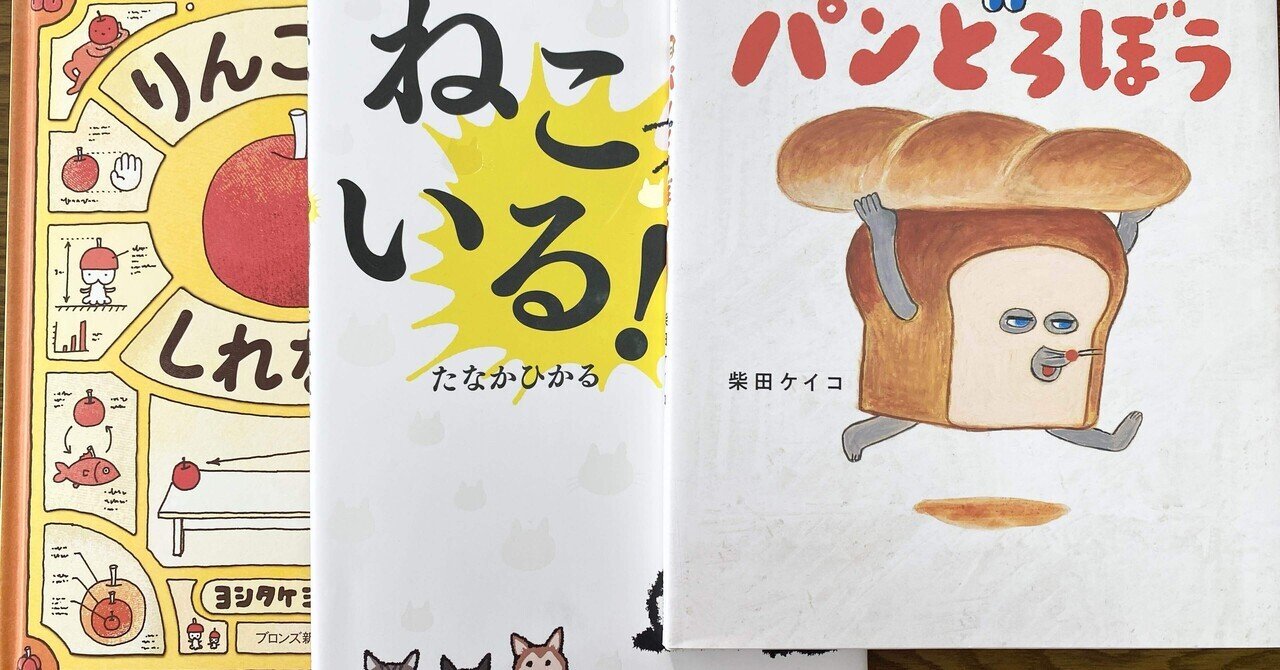 りんこ
しれな
ヨシタケシ
ブロンズ新
ねこ
いる!
たなかひかる
パンどろぼう
柴田ケイコ